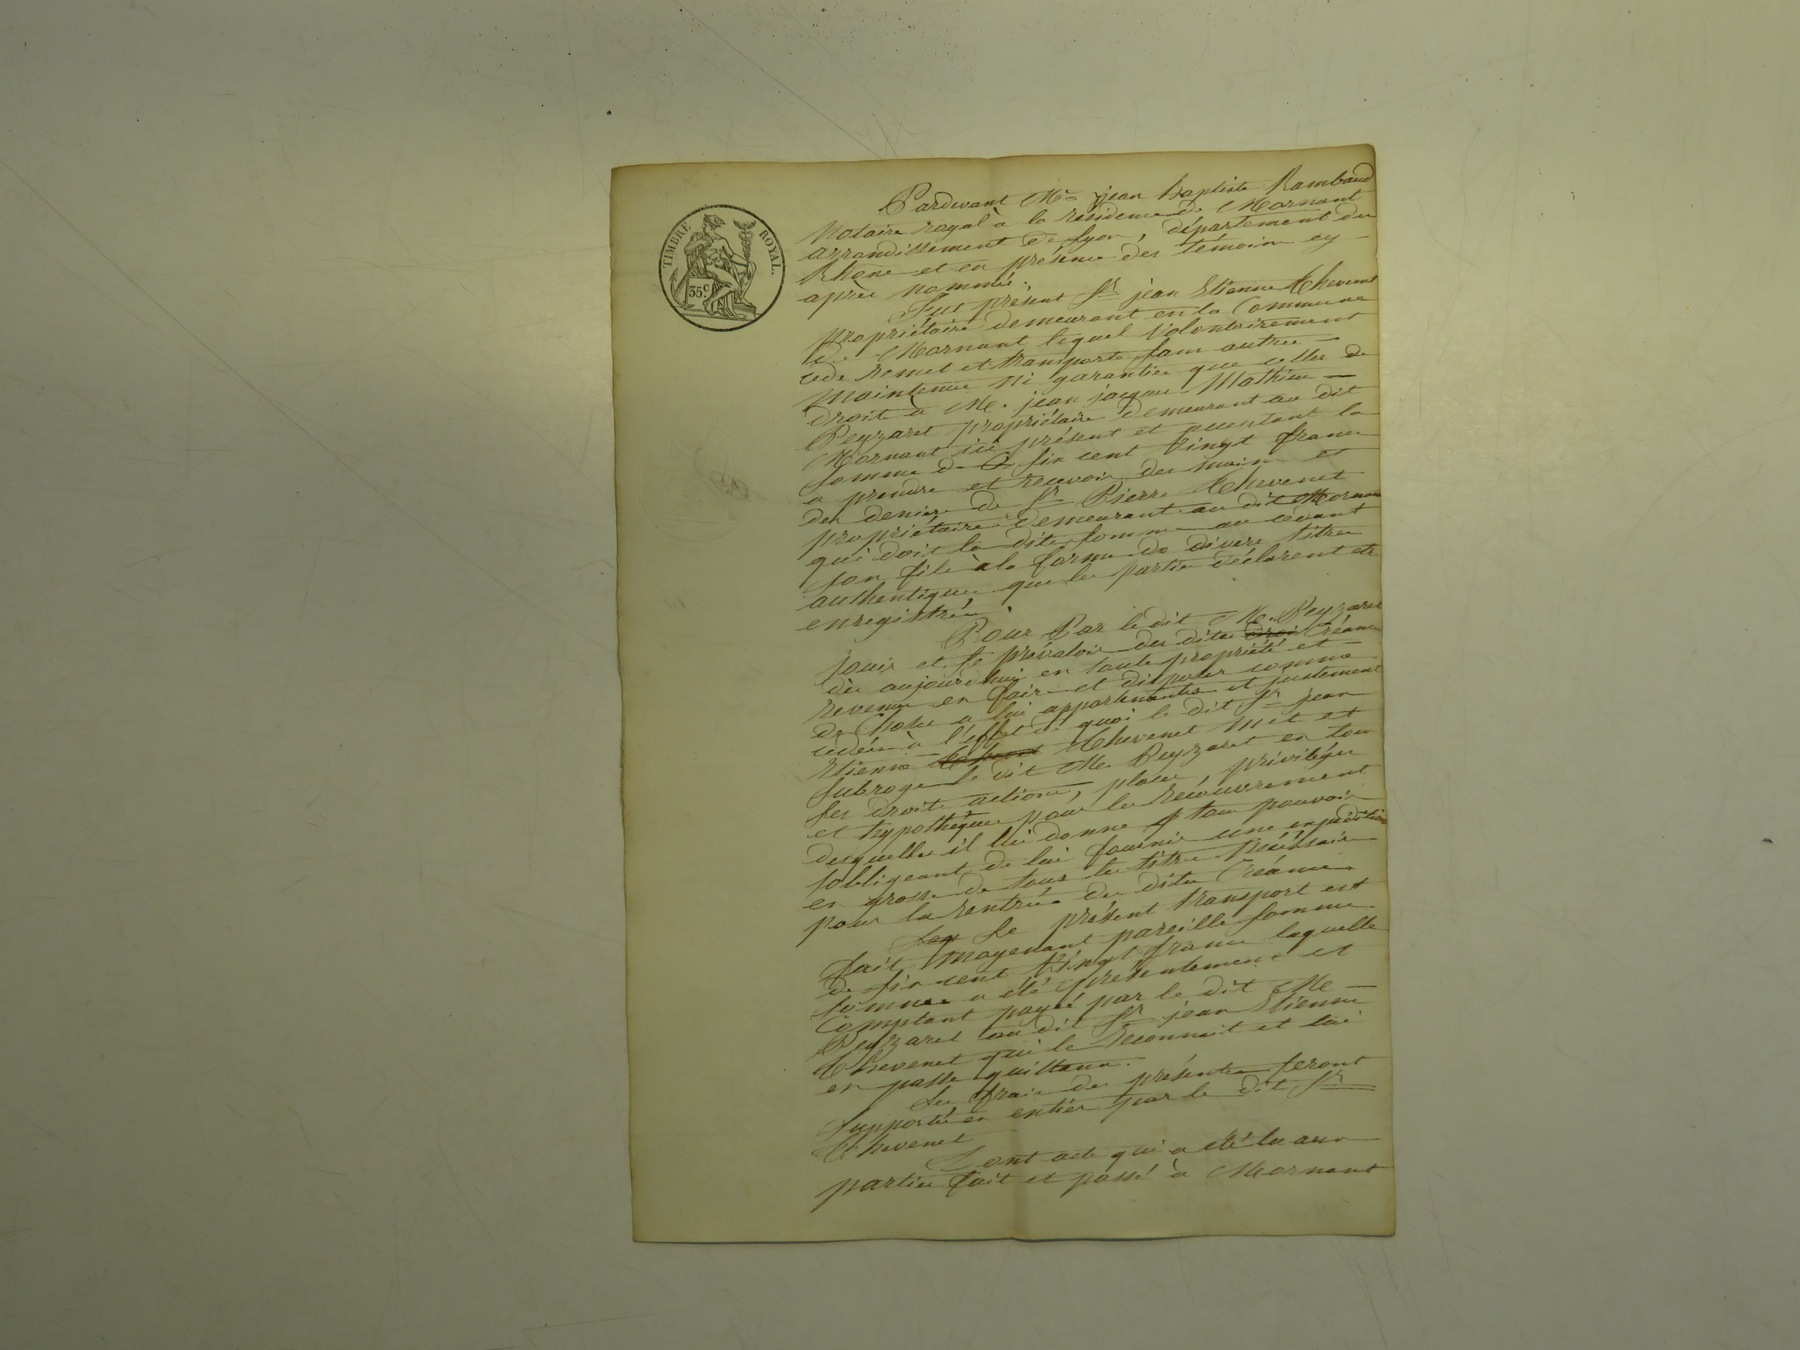 TIMBRE ROYAL.
35c
Pardevant Me jean baptiste Rambaud
Notaire royal à la résidence de Mornant
arrondissement de Lyon, département du
Rhone et en présence des témoins cy
après nommés.
Fut présent Sr jean Etienne Thevenet
propriétaire demeurant en la Commune
de Mornant lequel Volontairement
cede remet et transporte sans autre
maintenue ni garantie que celle de
droit à Me. jean jacques Mathieu
Peyzaret propriétaire demeurant au dit
Mornant ici présent et acceptant la
somme de six cent Vingt francs
a prendre et recevoir des mains et
des deniers de Sr Pierre Thevenet
propriétaire demeurant au dit Mornant
qui doit la dite somme au cédant
son fils à la forme de divers titres
authentiques que les parties déclarent etre
enregistrés.
Pour Par le dit Me. Peyzaret
jouir et se prévaloir des dites droi Créances
dès aujourd'hui en toute propriété et
revenus en faire et disposer comme
de Chose a lui appartenantes et justement
cédées à l'effet de quoi le dit Sr jean
Etienne Thevenet met et
subroge le dit Me. Peyzaret en tous
ses droits actions, places, privilèges
et hypothèques pour le recouvrement
desquelles il lui donne tous pouvoir
s'obligeant de lui fournir une expédition
en grosse de tous les titres Nécéssaires
pour la rentrée des dites Créances
Le présent transport est
fait moyenant pareille somme
de six cent Vingt francs laquelle
somme a été présentement et
Comptant payée par le dit Me
Peyzaret au dit Sr jean Etienne
Thevenet qui le reconnait et lui
en passe quittance.
Les frais des présentes seront
supportés en entier par le dit Sr
Thevenet
Dont acte qui a été lu aux
parties fait et passé à Mornant